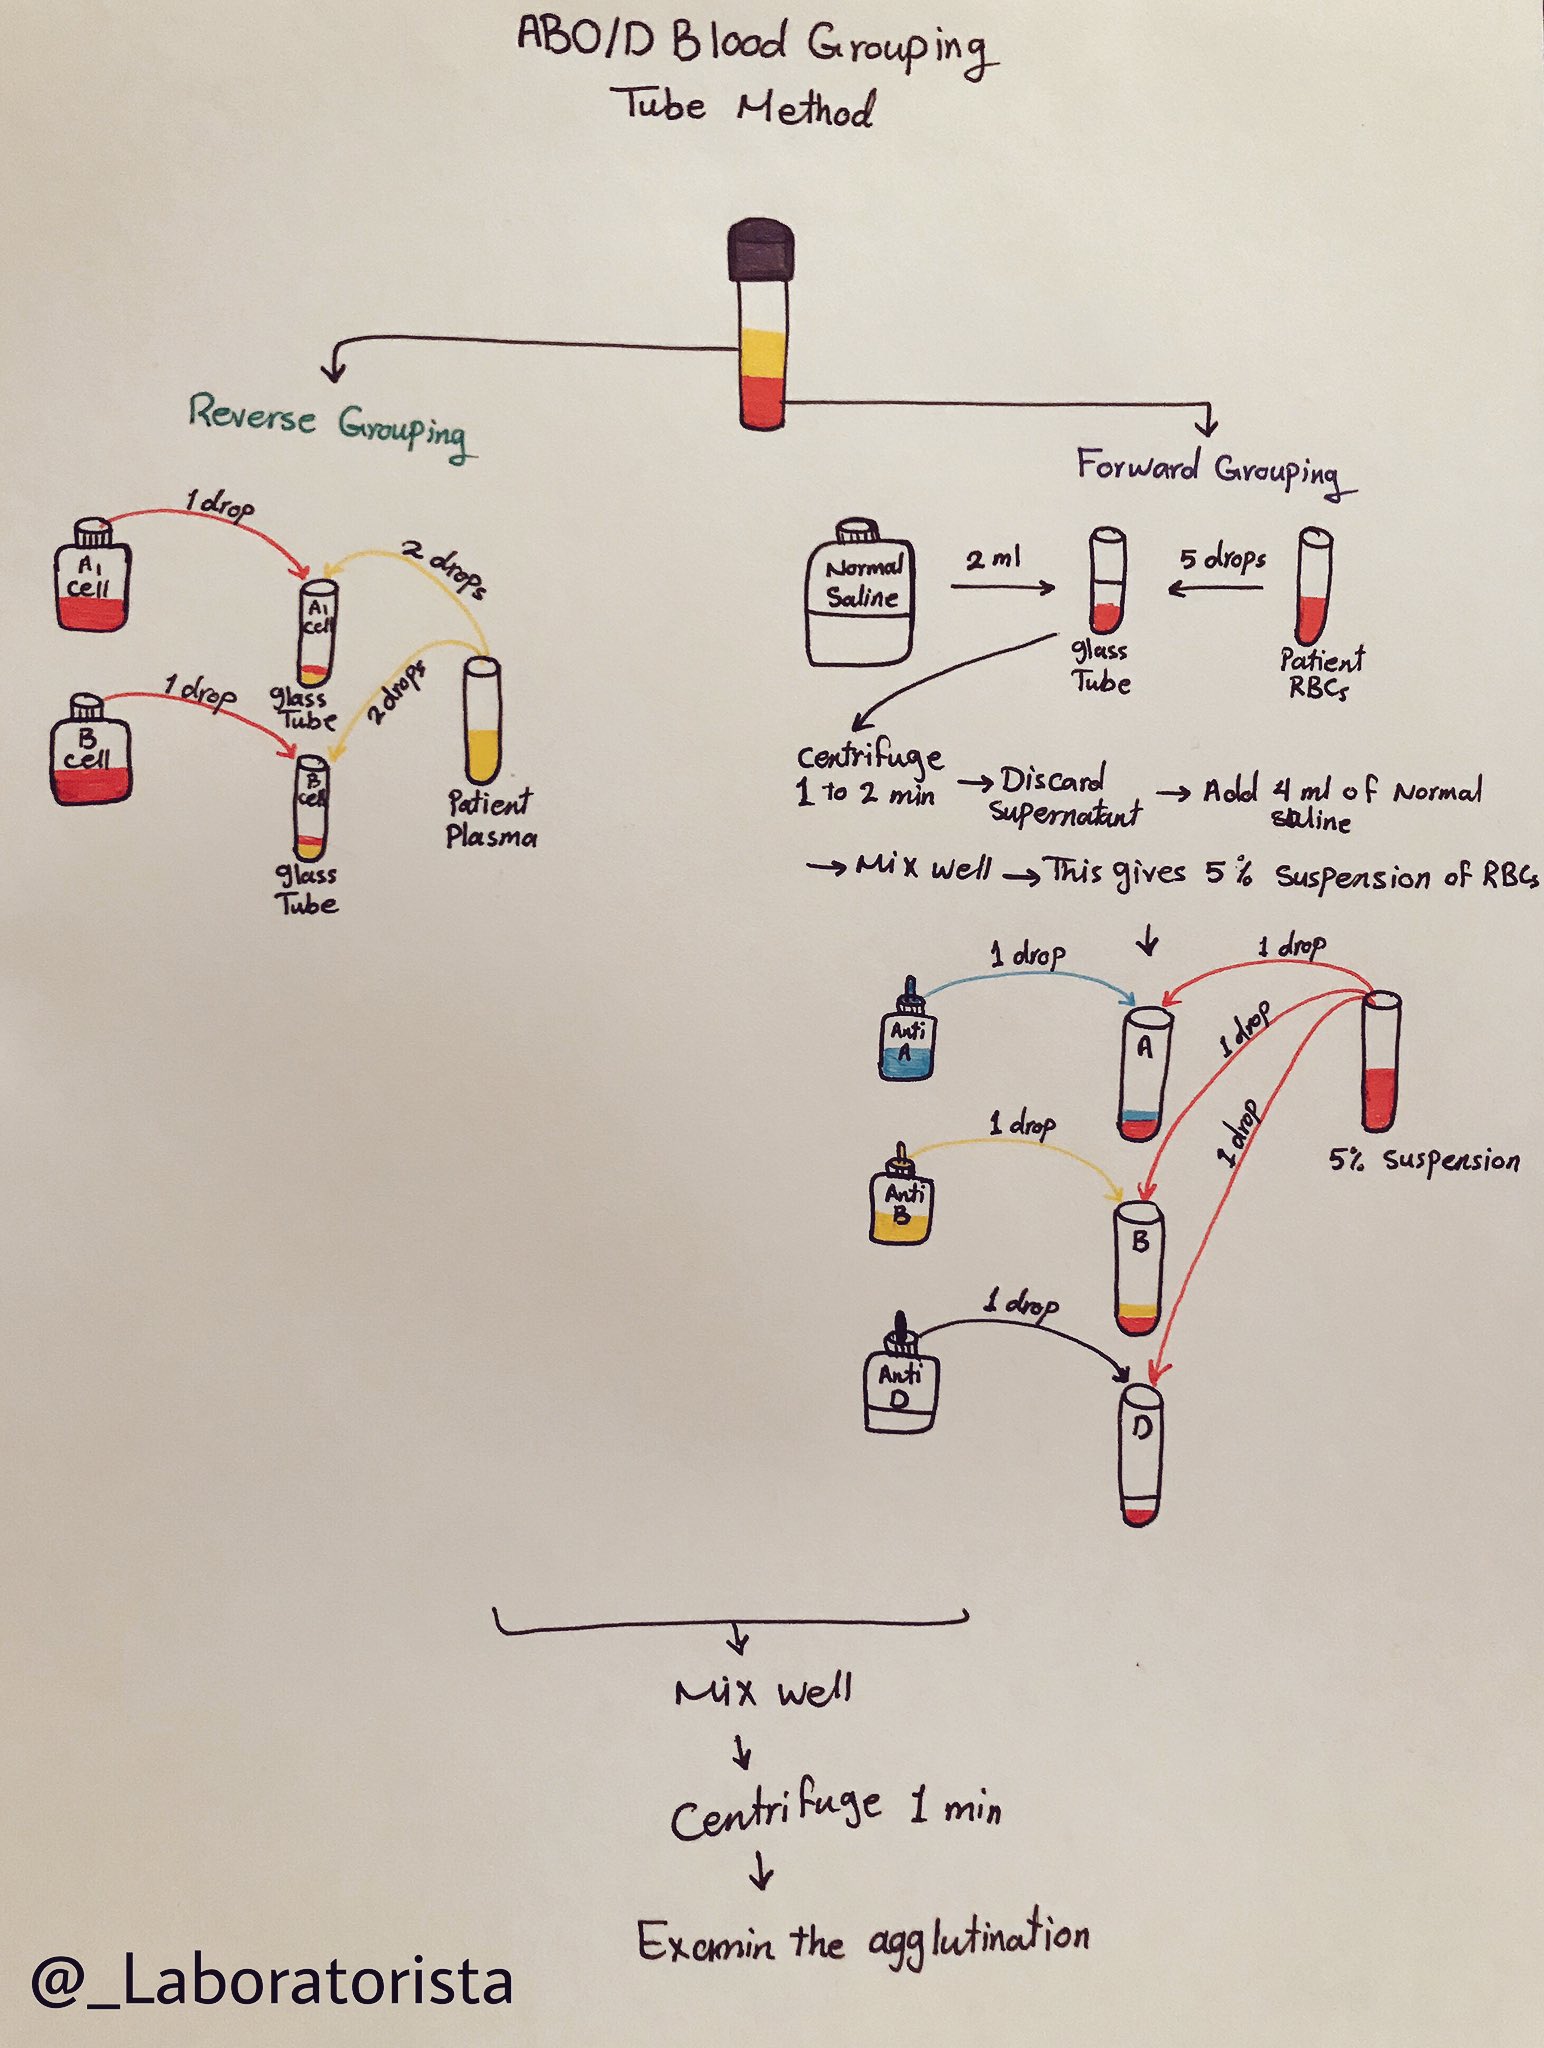 ABO/D Blood Grouping
Tube Method
Reverse Grouping
1 drop
2 drops
A1
cell
A1
cell
glass
Tube
1 drop
2 drops
B
cell
B
cell
glass
Tube
Patient
Plasma
Forward Grouping
Normal
Saline
2 ml
5 drops
glass
Tube
Patient
RBCs
Centrifuge
1 to 2 min
→ Discard
Supernatant
→ Add 4 ml of Normal
saline
→ Mix well → This gives 5% Suspension of RBCs
1 drop
1 drop
Anti
A
A
1 drop
5% Suspension
1 drop
1 drop
Anti
B
B
1 drop
Anti
D
D
Mix well
Centrifuge 1 min
Examin the agglutination
@_Laboratorista